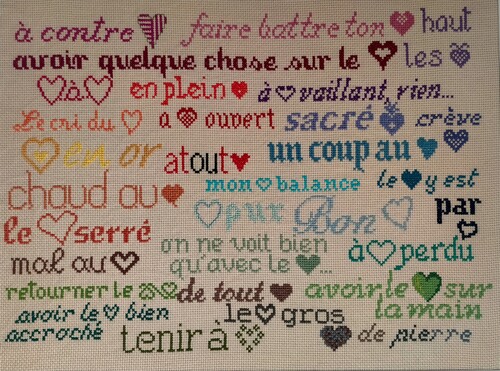 à contre ♥ faire battre ton ♥ haut
avoir quelque chose sur le ♥ les ♥
♥ à ♥ en plein ♥ à ♥ vaillant, rien...
Le cri du ♥ a ♥ ouvert sacré ♥ crève ♥
♥ en or atout ♥ un coup au ♥
chaud au ♥ mon ♥ balance le ♥ y est
le ♥ serré ♥ pur Bon ♥ par ♥
mal au ♥ on ne voit bien qu'avec le ♥... à ♥ perdu
retourner le ♥ de tout ♥ avoir le ♥ sur la main
avoir le ♥ bien accroché tenir à ♥ le ♥ gros ♥ de pierre